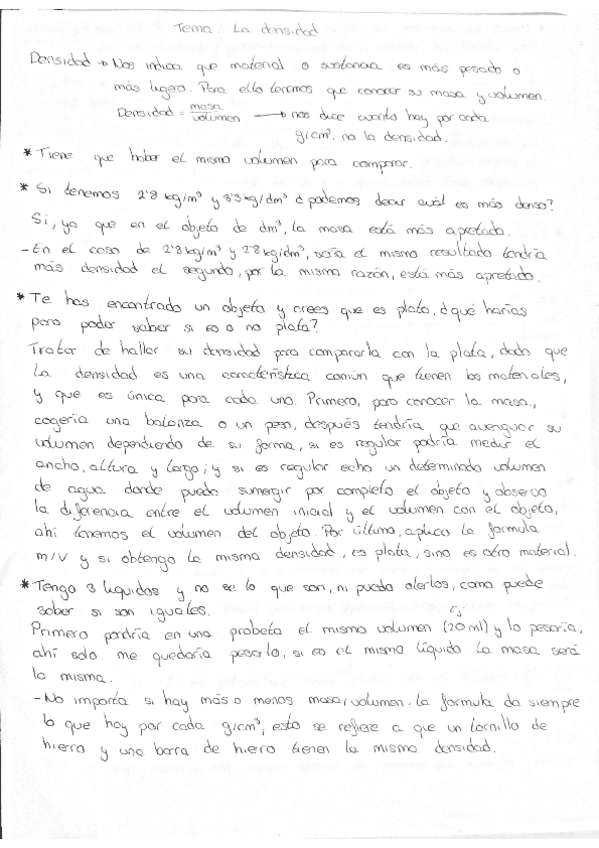 Tema: La densidad
Densidad → Nos indica que material o sustancia es más pesado o
más ligero. Para ello tenemos que conocer su masa y volumen.
Densidad = masa/volumen → nos dice cuanto hay por cada
g/cm³. no la densidad.
* Tiene que haber el mismo volumen para comparar.
* Si tenemos 2'8 kg/m³ y 3'3 kg/dm³ ¿podemos decir cuál es más denso?
Si, ya que en el objeto de dm³, la masa está más apretada.
- En el caso de 2'8 kg/m³ y 2'8 kg/dm³, sería el mismo resultado tendría
más densidad el segundo, por la misma razón, está más apretado.
* Te has encontrado un objeto y crees que es plata, ¿qué harías
para poder saber si es o no plata?
Tratar de hallar su densidad para compararla con la plata, dado que
la densidad es una característica común que tienen los materiales,
y que es única para cada uno. Primero, para conocer la masa,
cogería una balanza o un peso, después tendría que averiguar su
volumen dependiendo de su forma, si es regular podría medir el
ancho, altura y largo; y si es regular echo un determinado volumen
de agua donde puedo sumergir por completo el objeto y observo
la diferencia entre el volumen inicial y el volumen con el objeto,
ahí tenemos el volumen del objeto. Por último, aplico la formula
m/v y si obtengo la misma densidad, es plata, sino es otro material.
* Tengo 3 líquidos y no se lo que son, ni puedo olerlos, como puede
saber si son iguales.
Ej
Primero pondría en una probeta el mismo volumen (20 ml) y lo pesaría,
ahí solo me quedaría pesarlo, si es el mismo líquido la masa será
la misma.
- No importa si hay más o menos masa, volumen. la formula da siempre
lo que hay por cada g/cm³, esto se refiere a que un tornillo de
hierro y una barra de hierro tienen la misma densidad.